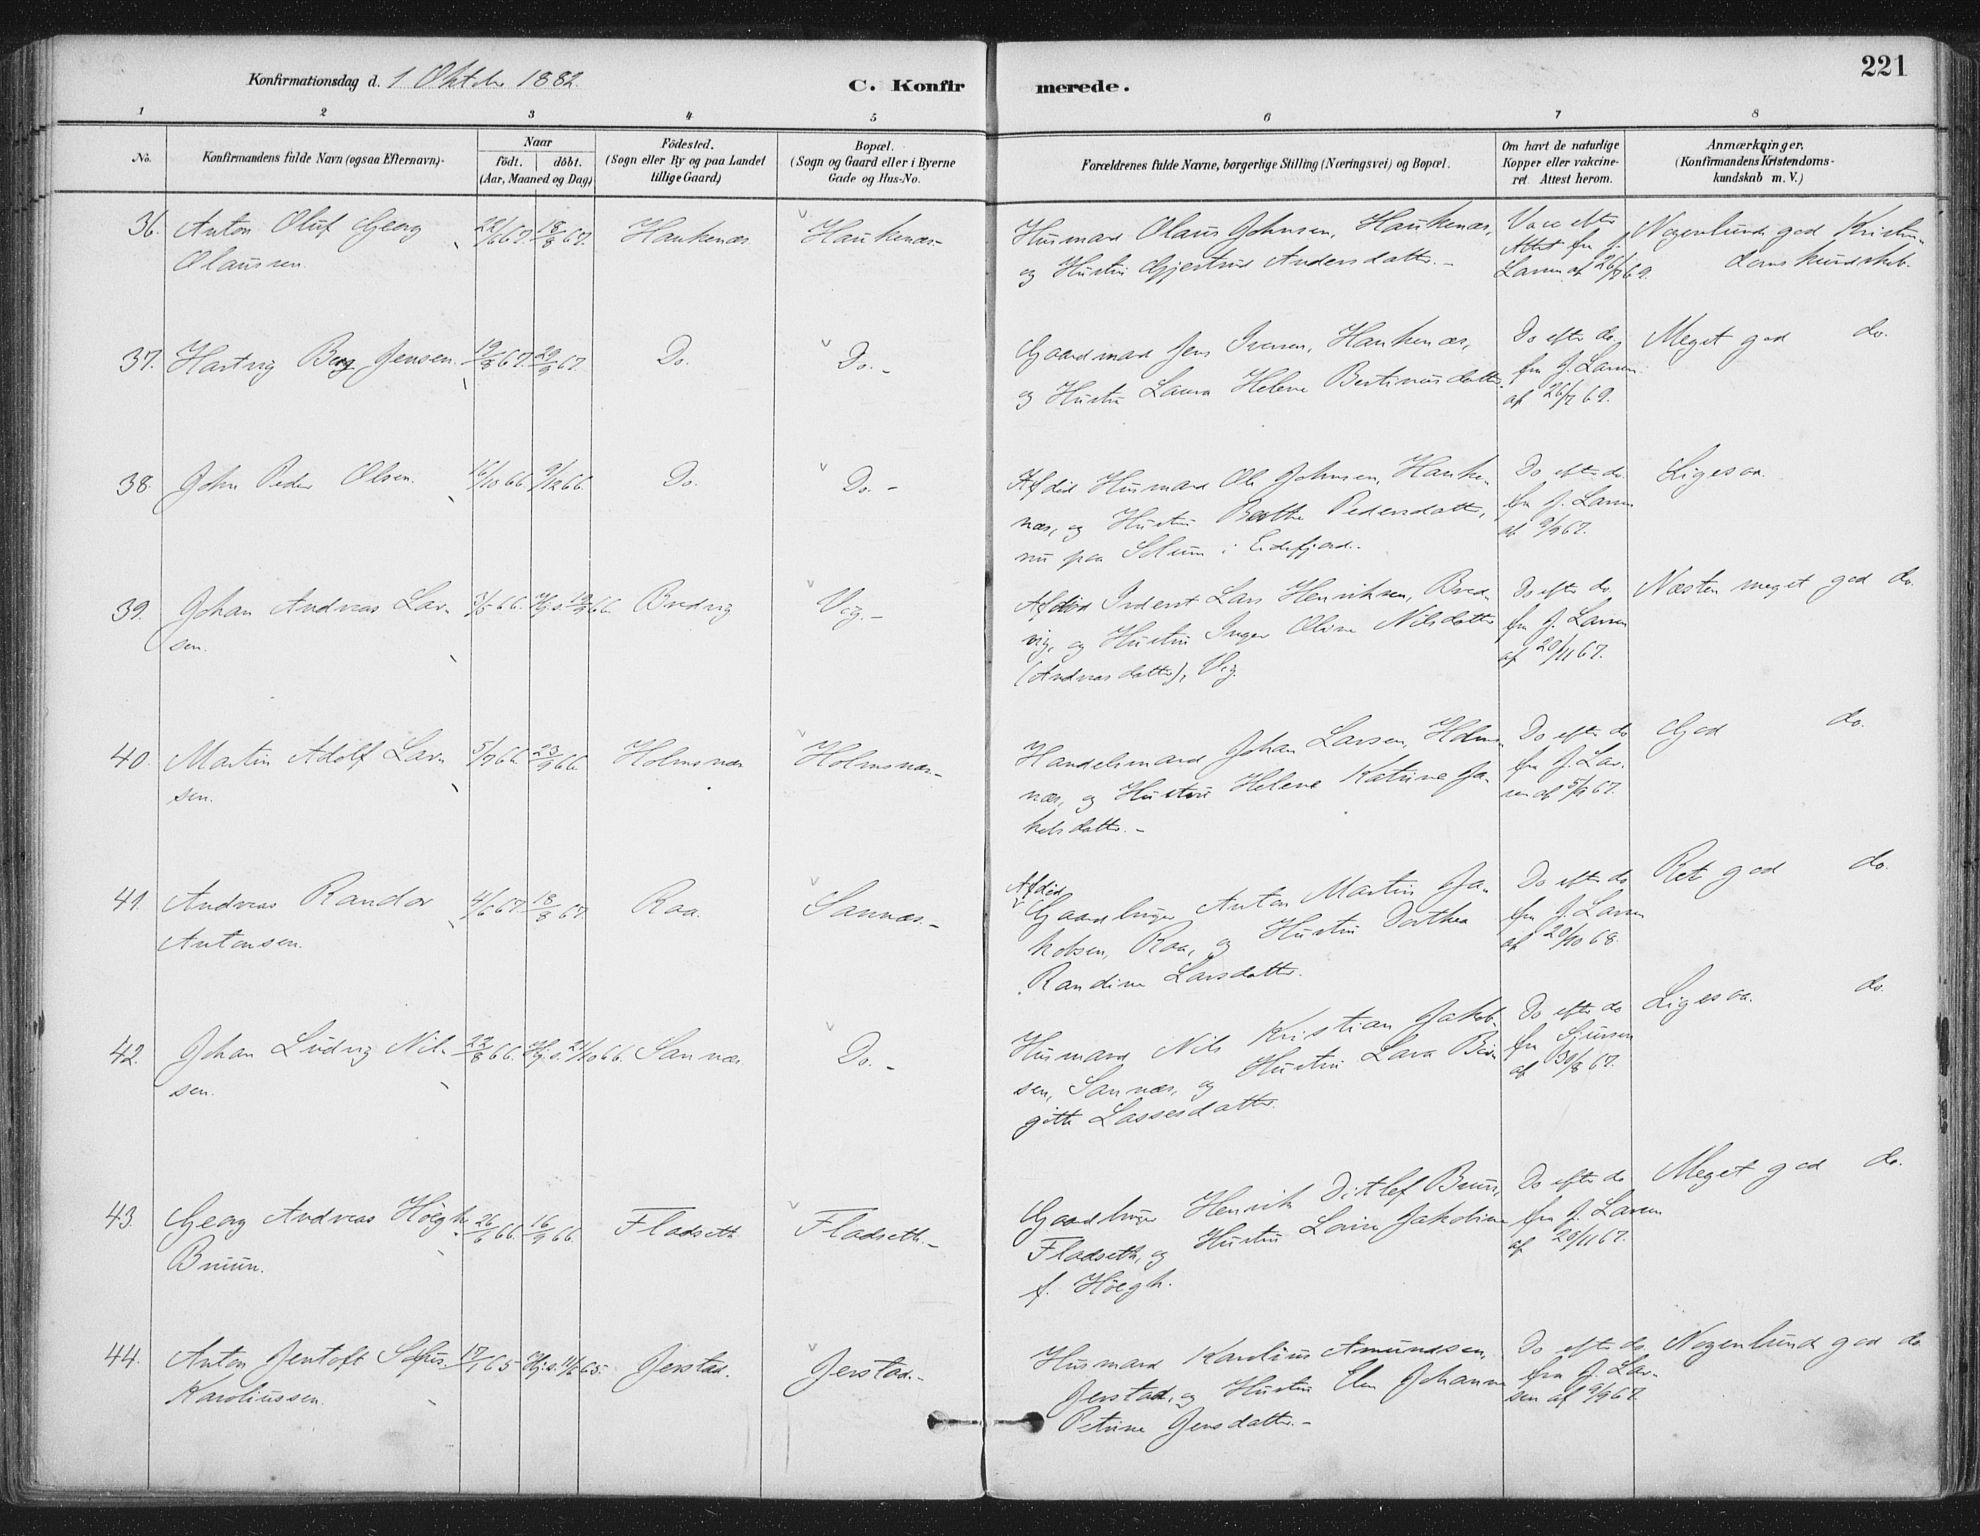 221
Konfirmationsdag d. 1 Oktober 1882.
C. Konfirmerede.
1 2 3 4 5 6 7 8
No.
Konfirmandens fulde Navn (ogsaa Efternavn).
Naar
födt. döbt.
(Aar, Maaned og Dag)
Födested.
(Sogn eller By og paa Landet
tillige Gaard)
Bopæl.
(Sogn og Gaard eller i Byerne
Gade og Hus-No.
Forældrenes fulde Navne, borgerlige Stilling (Næringsvei) og Bopæl.
Om havt de naturlige
Kopper eller vakcine-
ret. Attest herom.
Anmærkninger.
(Konfirmandens Kristendoms-
kundskab m. V.)
36. Anton Oluf Georg
Olaussen
22/6 67. 18/8 67.
Haukenæs
Haukenæs-
Husmand Olaus Johnsen, Haukenæs,
og Hustru Gjertrud Andersdatter.-
Vacc efter
Attest fra J.
Larsen af 26/9 69.
Nogenlunde god Kristen-
domskundskab.
37. Hartvig Berg Jensen.
19/8 67. 29/9 67.
Do.
Do.-
Gaardmand Jens Iversen, Haukenæs,
og Hustru Laura Helene Bertinusdatter.
Do efter do
fra J. Larsen
af 26/9 69.
Meget god do.
38. John Peder Olsen.
16/10 66. 9/12 66.
Do.
Do.-
Afdöd Husmand Ole Johnsen, Hauke-
næs, og Hustru Berthe Pedersdatter,
nu paa Solum i Eidsfjord.-
Do efter do.
fra J. Larsen
af 9/9 67.
Ligesaa.
39. Johan Andreas Lar-
sen.
3/5 66. Hj.d. 19/8 66.
Bredvig
Vig.-
Afdöd Inderst Lars Henriksen, Bred-
vig, og Hustru Inger Oline Nilsdatter
(Andreasdatter), Vig.
Do efter do.
fra J. Larsen
af 20/11 67.
Næsten meget god do.
40. Martin Adolf Lar-
sen.
5/7 66. 23/9 66.
Holmsnæs
Holmsnæs-
Handelsmand Johan Larsen, Holms-
næs, og Hustru Helene Katrine Ja-
kobsdatter.-
Do efter do
fra J. Lar-
sen af 5/9 67.
God do.
41. Andreas Randor
Antonsen.
4/6 67. 18/8 67.
Raa.
Sannæs.-
Afdöd
Gaardbruger Anton Martin Ja-
kobsen, Raa, og Hustru Dorthea
Randine Larsdatter.
Do efter do
fra J. Larsen
af 20/10 68.
Ret god do.
42. Johan Ludvig Nil-
sen.
22/8 66. Hj.d. 21/10 66.
Sannæs
Do.-
Husmand Nils Kristian Jakob-
sen, Sannæs, og Hustru Lava Bir-
gitte Lassesdatter.
Do efter do
fra Sjursen
af 30/8 67.
Ligesaa. do.
43. Georg Andreas Höegh
Bruun.
26/6 66. 16/9 66.
Fladseth
Fladseth.-
Gaardbruger Henrik Ditlef Bruun,
Fladseth, og Hustru Lovise Jakobine
f. Höegh.
Do efter do
fra J. Larsen
af 20/11 67.
Meget god do.
44. Anton Jentoft Sofus
Karoliussen.
17/1 65. Hj.d. 11/6 65.
Jerstad.
Jerstad.-
Husmand Karolius Amundsen,
Jerstad, og Hustru Elen Johanne
Petrine Jensdatter.-
Do efter do
fra J. Lar-
sen af 9/9 67.
Nogenlunde god do